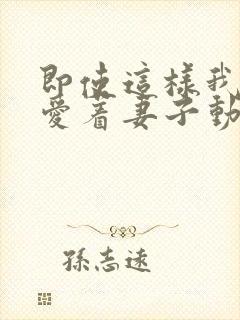 即使這樣我
愛着妻子動
孫志遠